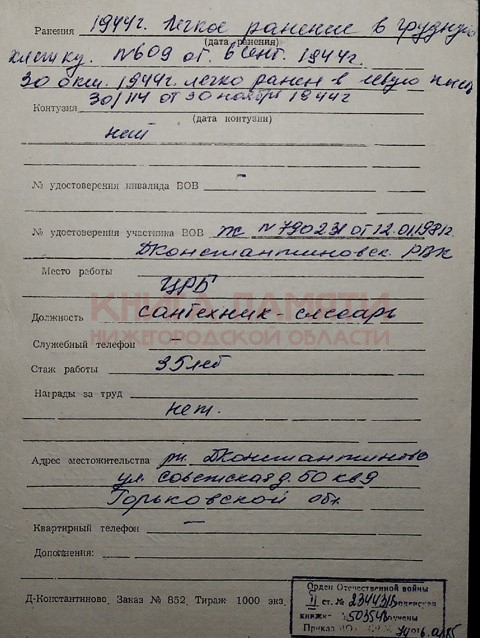 Ранения 1944г. Легкое ранение в грудную
(дата ранения)
клетку. №609 от. 6 сент. 1944г.
30 окт. 1944г. легко ранен в левую кисть
30/114 от 30 ноября 1944г
Контузия
(дата контузии)
нет
№ удостоверения инвалида ВОВ –
№ удостоверения участника ВОВ Ж №790231 от 12.01.1981г.
Дконстантиновск. РВК
Место работы
ЦРБ
КНИГА ПАМЯТИ
Должность сантехник-слесарь
НИЖЕГОРОДСКОЙ ОБЛАСТИ
Служебный телефон –
Стаж работы 35 лет
Награды за труд
нет.
Адрес местожительства рп. Дконстантиново
ул. Советская д. 50 кв 9
Горьковской обл.
Квартирный телефон –
Дополнения:
Орден Отечественной войны
II ст. №
Д-Константиново, Заказ № 852, Тираж 1000 экз.
книжк
Приказ